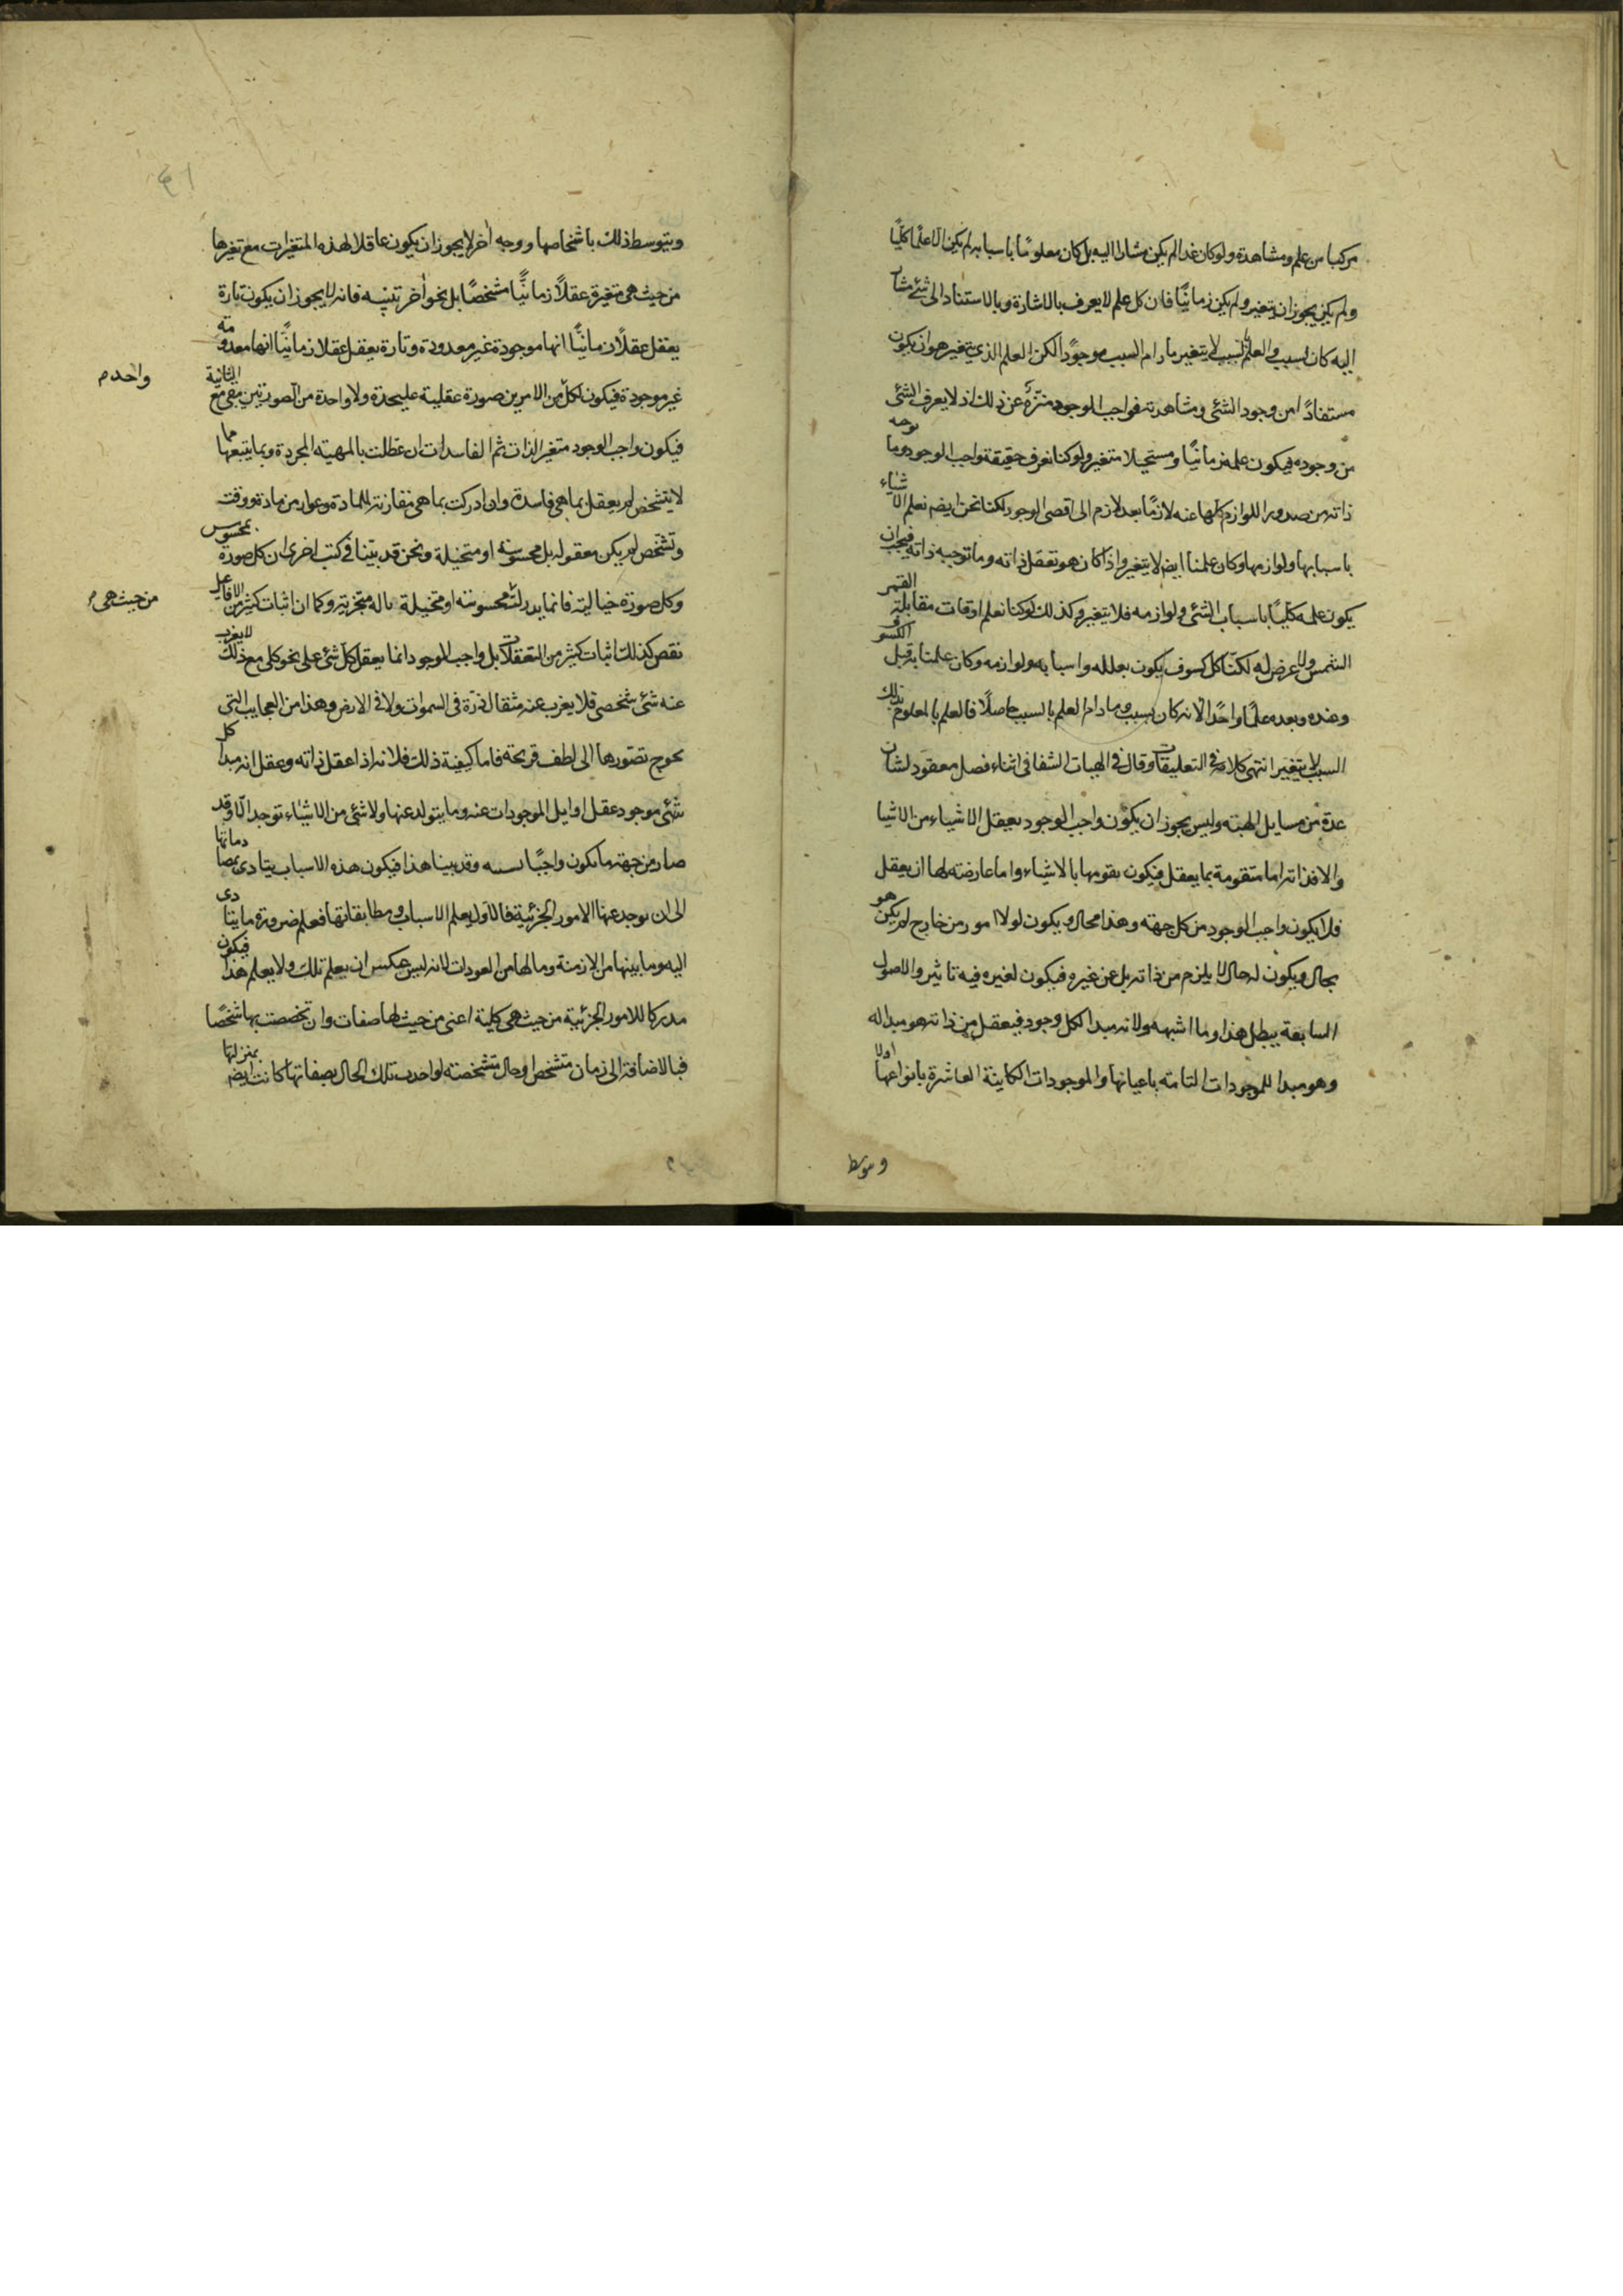 مركبا من علم ومشاهدة ولو كان غدا لم يكن مشارا اليه بل كان معلومًا باسبابه لم يكن الا علمًا كليًا
ولم يكن يجوز ان يتغير ولم يكن زمانيًا فان كل علم لا يعرف بالاشارة وبالاستناد الى شئ مشار
اليه كان بسبب والعلم بالسبب لا يتغير ما دام السبب موجودًا لكن العلم الذي يتغير هو ان يكون
مستفادًا من وجود الشئ ومشاهدته فواجب الوجود منزّه عن ذلك اذ لا يعرف الشئ
من وجوده فيكون علمه زمانيًا ومستحيلا متغيرا ولو كنا نعرف حقيقة واجب الوجود وما توجبه
ذاته من صدور اللوازم كلها عنه لازمًا بعد لازم الى اقصى الوجود لكنا نحن ايضا نعلم الاشياء
باسبابها ولوازمها وكان علمنا ايضا لا يتغير واذا كان هو تعقل ذاته وما توجبه ذاته فيجب ان
يكون علمه كليًا باسباب الشئ ولوازمه فلا يتغير وكذلك لو كنا نعلم اوقات مقابلة القمر
الشمس ولا عرض له لكنا كل كسوف يكون بعلله واسبابه ولوازمه وكان علمنا به قبل الكسوف
وعنده وبعده علمًا واحدًا لانه كان بسبب وما دام العلم بالسبب حاصلًا فالعلم بالمعلوم بذلك
السبب لا يتغير انتهى كلامه في التعليقات وقال في الهيات الشفا في اثناء فصل معقود لشان
عدة من مسايل الهيته وليس يجوز ان يكون واجب الوجود يعقل الاشياء من الاشيا
والا فذاته اما متقومة بما يعقل فيكون تقومها بالاشياء واما عارضته لها ان يعقل
فلا يكون واجب الوجود من كل جهته وهذا محال ويكون لولا امور من خارج لم يكن هو
بحال ويكون له حال لا يلزم من ذاته بل عن غيره فيكون لغيره فيه تاثير والاصول
السابقة يبطل هذا وما اشبهه ولانه مبدا لكل وجود فيعقل من ذاته ما هو مبدا له
وهو مبدا للموجودات التامته باعيانها والموجودات الكاينة الفاسدة بانواعها اولا
وبتوسط
وبتوسط ذلك باشخاصها ووجه أخر لا يجوز ان يكون عاقلا لهذه المتغيرات مع تغيرها
من حيث هي متغيرة عقلًا زمانيًّا مشخصًا بل نحو أخر نبينه فانه لا يجوز ان يكون تارة
يعقل عقلًا زمانيًّا انها موجودة غير معدومة وتارة يعقل عقلا زمانيًّا انها معدومة
غير موجودة فيكون لكل من الامرين صورة عقلية عليحدة ولا واحدة من الصورتين تبقى مع الثانية
واحد م
فيكون واجب الوجود متغير الذات ثم الفاسدات ان عقلت بالمهية المجردة وبما يتبعها مما
لا يتشخص لم يعقل بما هي فاسدة وان ادركت بما هي مقارنة للمادة وعوارض مادة ووقت
وتشخص لم يكن معقولة بل محسوسة او متخيلة ونحن قد بينا في كتب اخرى ان كل صورة بمحسوس
وكل صورة خيالية فانما يدرك محسوسته او متخيلة باله متجزية وكما ان اثبات كثير من الافاعيل
من حيث هي م
نقص كذلك اثبات كثير من التعقلات بل واجب الوجود انما يعقل كل شئ على نحو كلي مع ذلك لا يعزب
عنه شئ شخصي فلا يعزب عنه مثقال ذرة في السموات ولا في الارض وهذا من العجايب التي
يحوج تصورها الى لطف قريحة فاما كيفية ذلك فلانه اذا عقل ذاته وعقل انه مبدا كل
شئ موجود عقل اوايل الموجودات عنه وما يتولد عنها ولا شئ من الاشياء توجد الا وقد
صار من جهة ما يكون واجبًا بسببه وقد بينا هذا فيكون هذه الاسباب يتادى بمصادماتها
الى ان يوجد عنها الامور الجزئية فالاول يعلم الاسباب ومطابقاتها فعلم ضرورة ما يتادى
اليه وما بينها من الازمنة وما لها من العودات لانه ليس يمكن ان يعلم تلك ولا يعلم هذا فيكون
مدركا للامور الجزئية من حيث هي كلية اعني من حيث لها صفات وان تخصصت بها شخصًا
فبالاضافة الى زمان متشخص او حال متشخصته لو اخذت تلك الحال بصفاتها كانت ايضا بمنزلتها